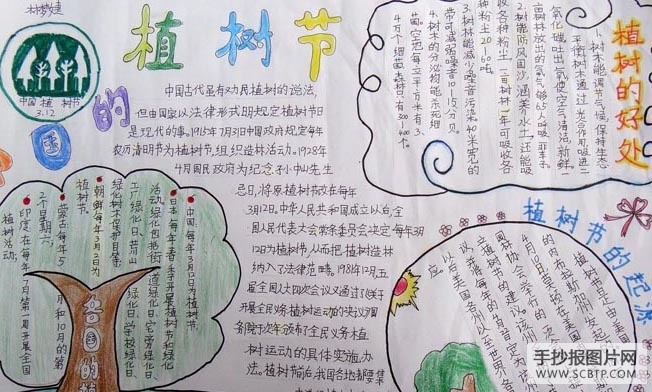 植树节
中国植树节
3.12
中国古代是有劝民植树的说法,
但由国家以法律形式明规定植树节日
是现代的事。1915年7月31日中国政府规定每年
农历清明节为植树节,组织造林活动。1928年
4月国民政府为纪念孙中山先生
忌日,将原植树节改在每年
3月12日。中华人民共和国成立以后,全
国人民代表大会常务委员会决定每年3月
12日为植树节,从而把植树造林
纳入了法律范畴。1981年12月,五
届全国人大四次会议又通过了《关于
开展全民义务植树运动的决议》,国
务院于次年颁布了全民义务植
树运动的具体实施办
法。植树节前后,我国各地都要集
植树的好处
1.树木能调节气候,保持生态
平衡,树木通过光合作用,吸进二
氧化碳,吐出氧气,使空气清洁、新鲜。
亩树林放出的氧气够65人呼吸
2.树能防风固沙,涵养水土,还能吸
收各种粉尘,一亩树林一年可吸收各
种粉尘20—60吨。
3.树林能减少噪音污染。40米宽的
林带可减弱噪音10—15分贝。
4.树木的分泌物能杀死细
菌。空地每立方米有3、
4万个细菌,森林里只有300—400个。
各国的植
的
中国:每年3月12日为植树节。
日本:每年春季开展植树节和绿化
活动,绿化包括街道绿化日、宅旁绿化日、
工厂绿化日、荒山绿化日、学校绿化日、
绿化树木保护日等。
朝鲜:每年3月2日为
植树节。
蒙古:每年5月和10月的第
2个星期六。
印度:在每年7月第一周开展全国
植树活动。
植树节的起源
手抄报图片网
WWW.SCBTP.COM